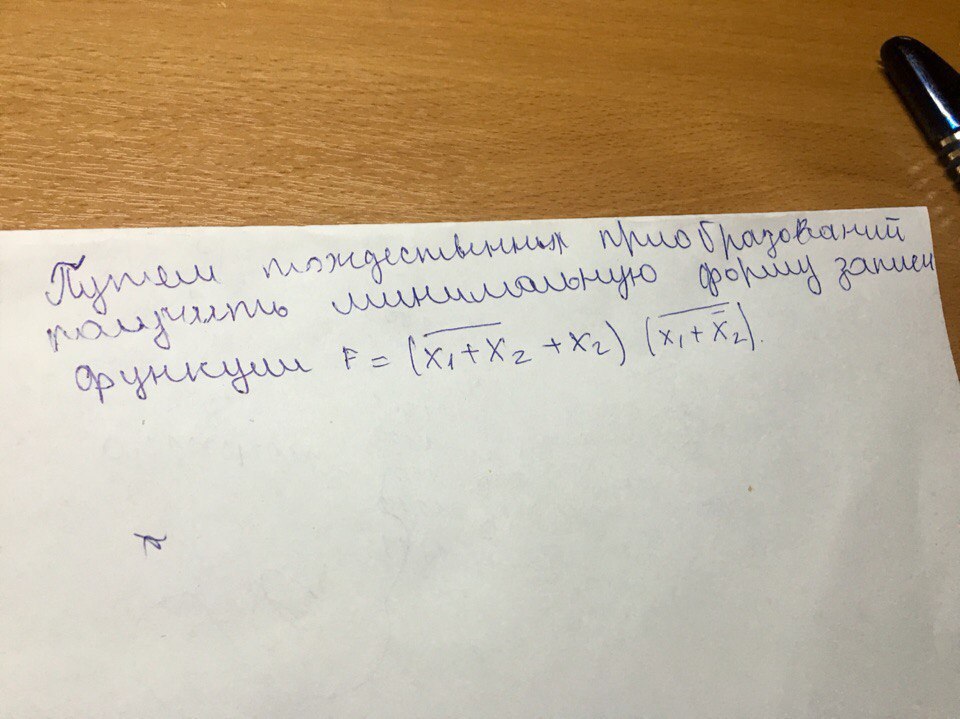 Путем тождественных приобразований
получить минимальную форму записи
функции F = (x̅₁̅ ̅+̅ ̅x̅₂ + x₂) (x̅₁̅ ̅+̅ ̅x̿₂).